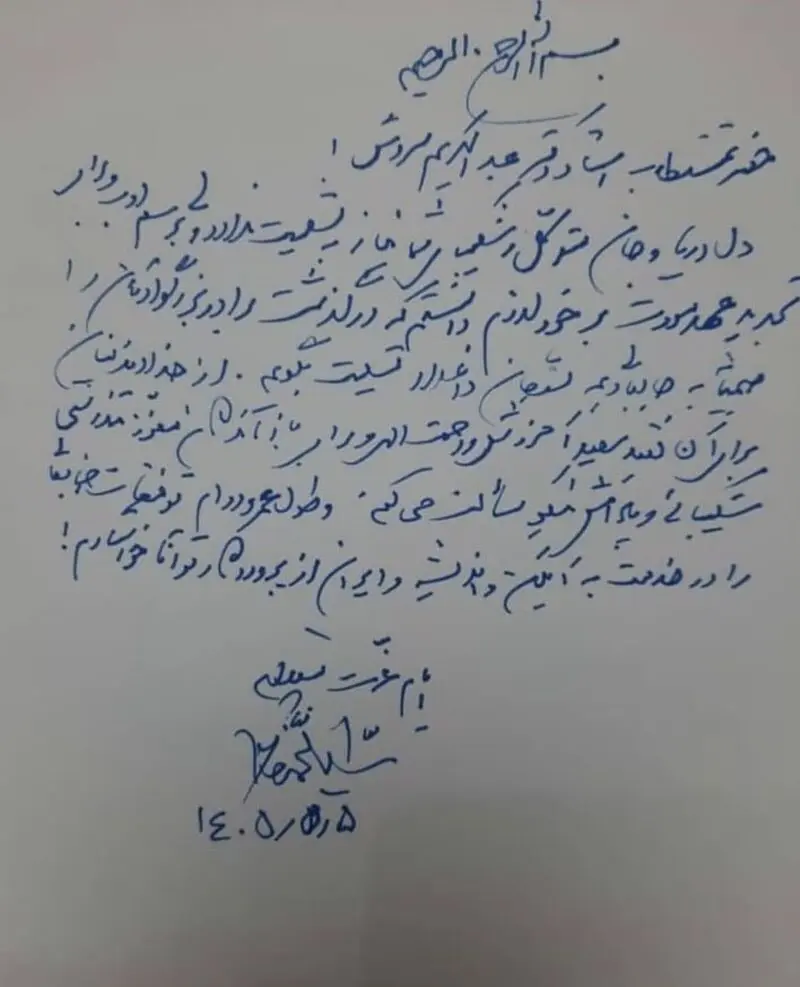 بسم الله الرحمن الرحیم
حضرت مستطاب استاد دکتر عبدالکریم سروش!
دل دریا و جان متوکل و شکیبای شما نیاز به تسلیت ندارد ولی به رسم ادب و برای
تجدید عهد مودت بر خود لازم دانستم که درگذشت برادر بزرگوارتان را
صمیمانه به جنابعالی و همه داغدار تسلیت بگویم. از خداوند منان
برای آن فقید سعید آمرزش و رحمت الهی و برای بازماندگان معزز تندرستی
شکیبائی و پاداش نیکو مسألت می‌کنم. و طول عمر و دوام توفیقات جنابعالی
را در خدمت به آئین و اندیشه و ایران از پروردگار توانا خواستارم!
ایام عزت مستدام
سید محمد خاتمی
۱۴۰۵/۵/۵